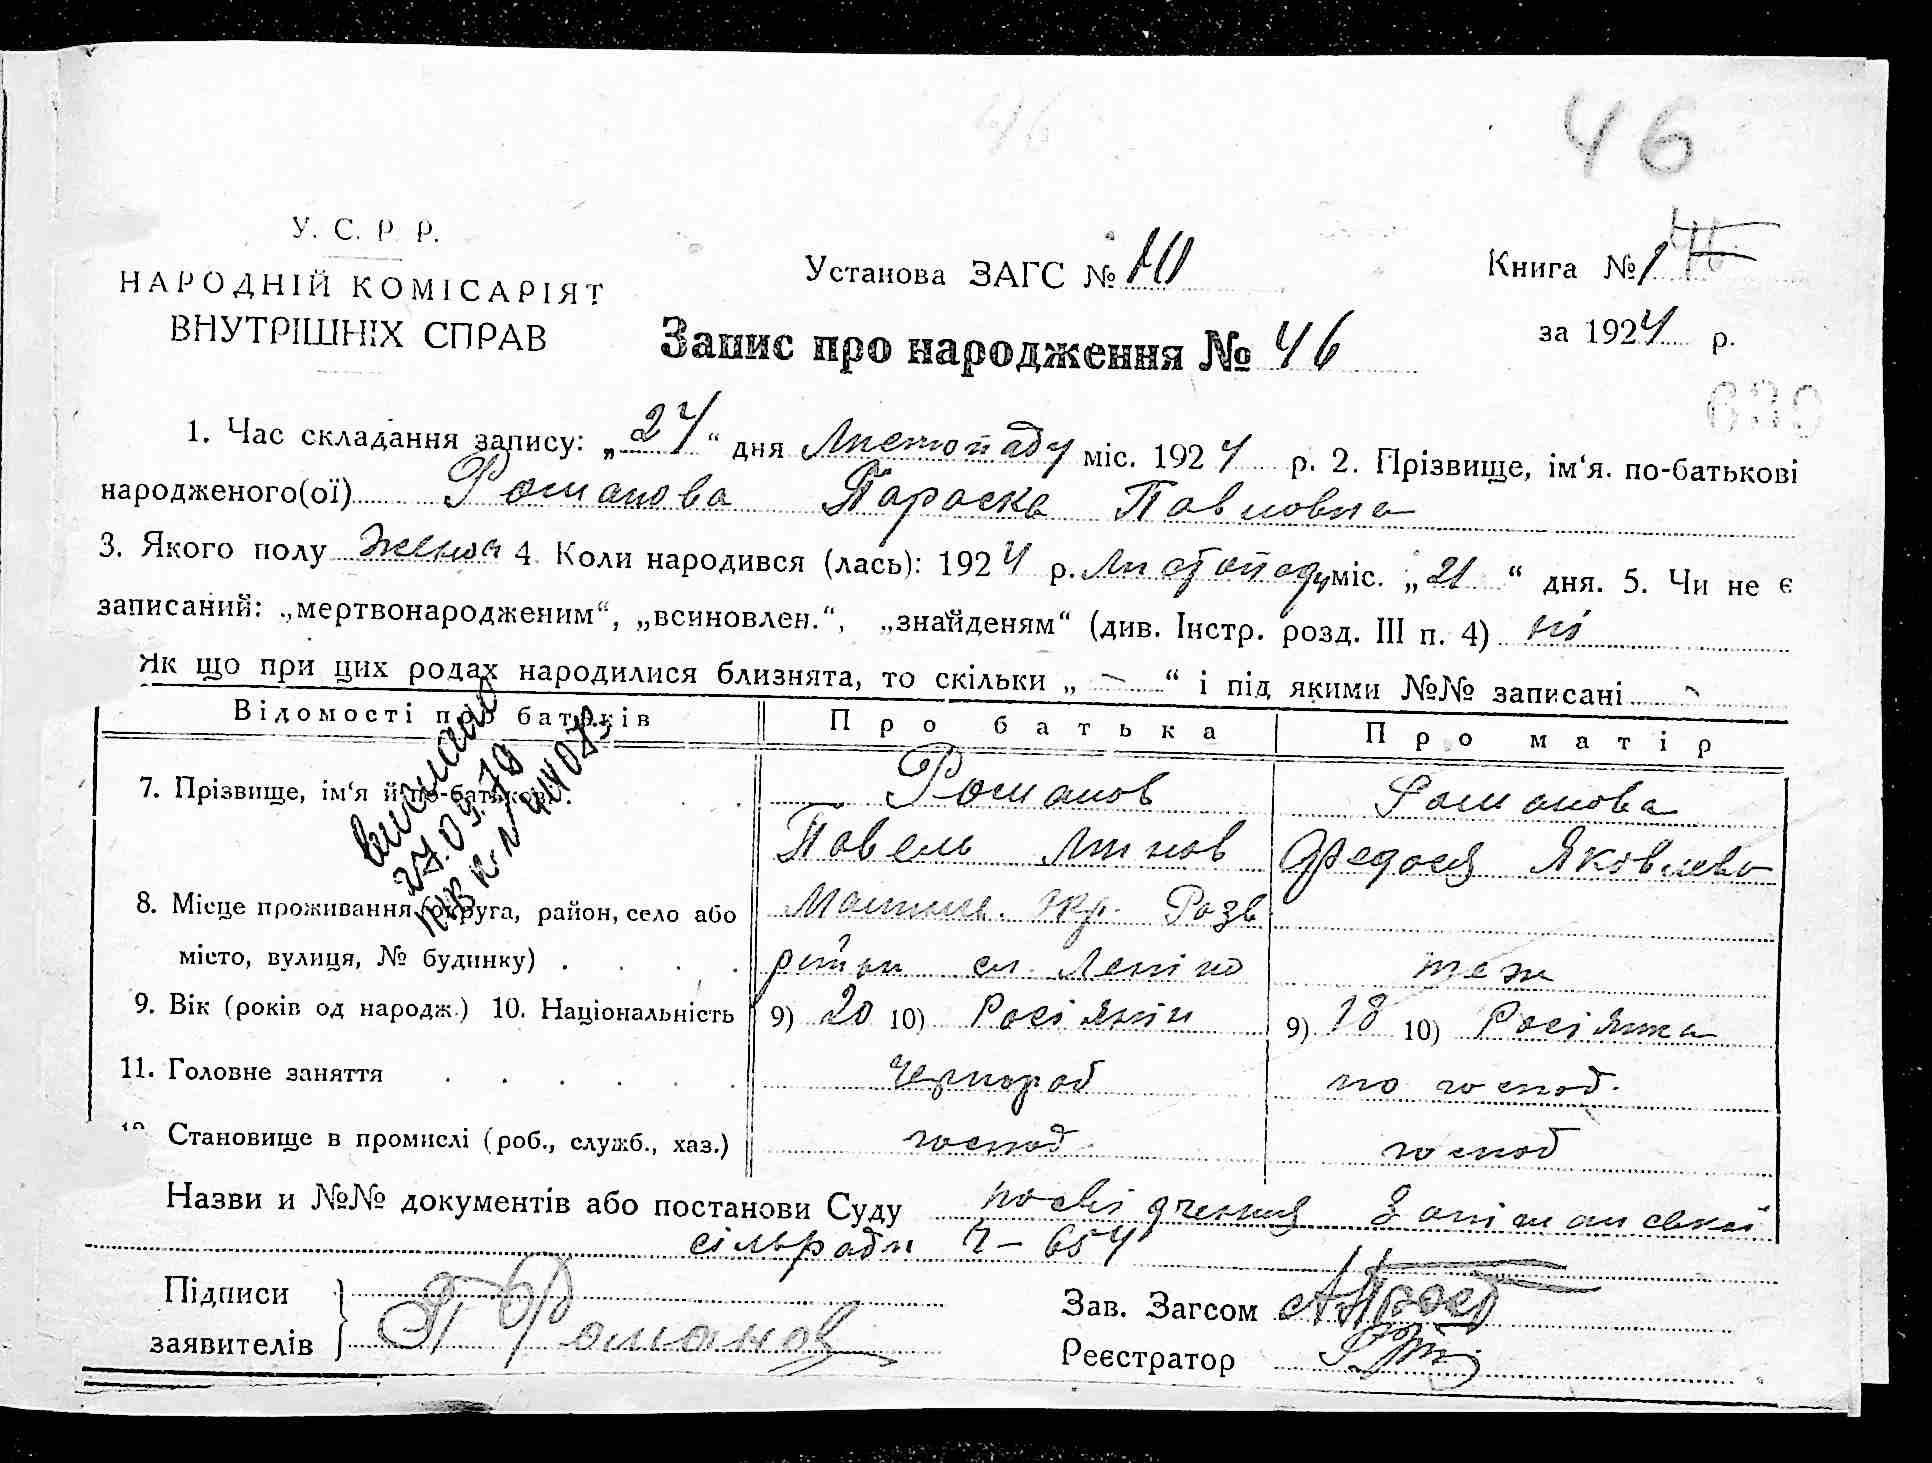 46
У. С. Р. Р.
НАРОДНІЙ КОМІСАРІЯТ
ВНУТРІШНІХ СПРАВ
Установа ЗАГС №
Книга № 1
за 1924 р.
Запис про народження № 46
639
1. Час складання запису: „24“ дня Листопаду міс. 1924 р. 2. Прізвище, ім‘я. по-батькові
народженого(ої) Романова Параска Павловна
3. Якого полу 4. Коли народився (лась): 1924 р. Листопаду міс. „21“ дня. 5. Чи не є
записаний: „мертвонародженим“, „всиновлен.“, „знайденям“ (див. Інстр. розд. III п. 4) ні
Як що при цих родах народилися близнята, то скільки „ - “ і під якими №№ записані -
Відомості про батьків Про батька Про матір
7. Прізвище, ім‘я й по-батькові. Романов Романова
Павель Федося Яковлева
8. Місце проживання (округа, район, село або окр.
місто, вулиця, № будинку) . . . . теж
9. Вік (років од народж.) 10. Національність 9) 20 10) Росіянін 9) 18 10) Росіянка
11. Головне заняття . . . . . . чернороб по господ.
Становище в промислі (роб., служб., хаз.) господ. господ
Назви и №№ документів або постанови Суду посвідчення
сільради Ч-654
27.09.78
Підписи
заявителів
П Романов
Зав. Загсом
Реєстратор